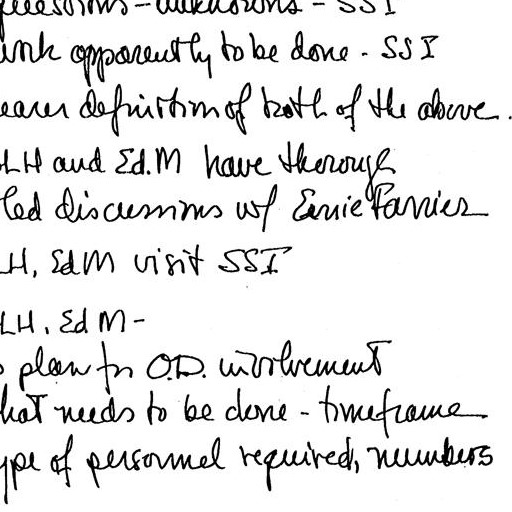 questions - unknowns - SSI
ink apparently to be done - SSI
earer definition of both of the above.
LH and Ed.M have thorough
led discussions w/ Ernie Farrier
H, EdM visit SSI
LH, Ed M -
plan for O.D. involvement
hat needs to be done - timeframe
ype of personnel required, numbers